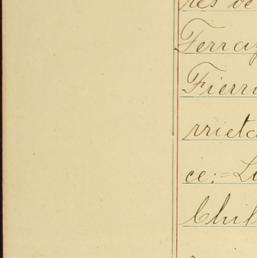 res de
Terraz
Fierr
rrieta
ce:=Lu
Chil